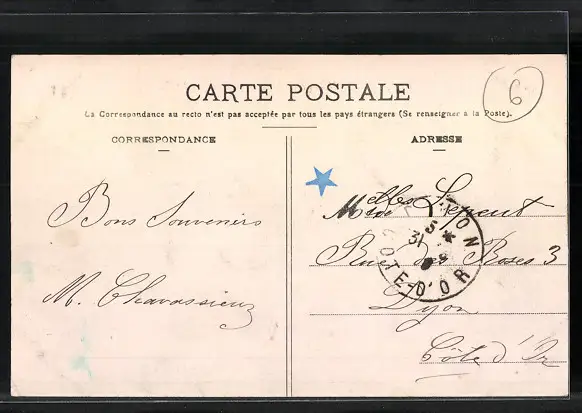 CARTE POSTALE
La Correspondance au recto n'est pas acceptée par tous les pays étrangers (Se renseigner à la Poste).
6
CORRESPONDANCE
ADRESSE
Bons Souvenirs
M. Chavassieux
Melles
Rue des Roses 3
Dijon
Côte d'Or
DIJON
5
31
COTE-D'OR